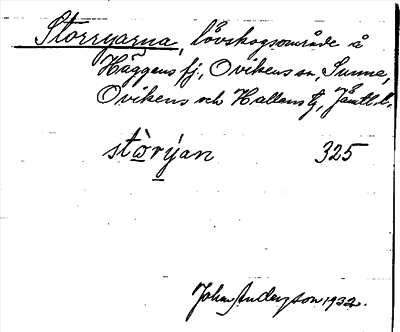 Storryarna, lövskogsområde å
Häggens fj., Ovikens sn, Sunne,
Ovikens och Hallens tg, Jämtl. l.
stòrýan 325
Johan Anderson 1932.